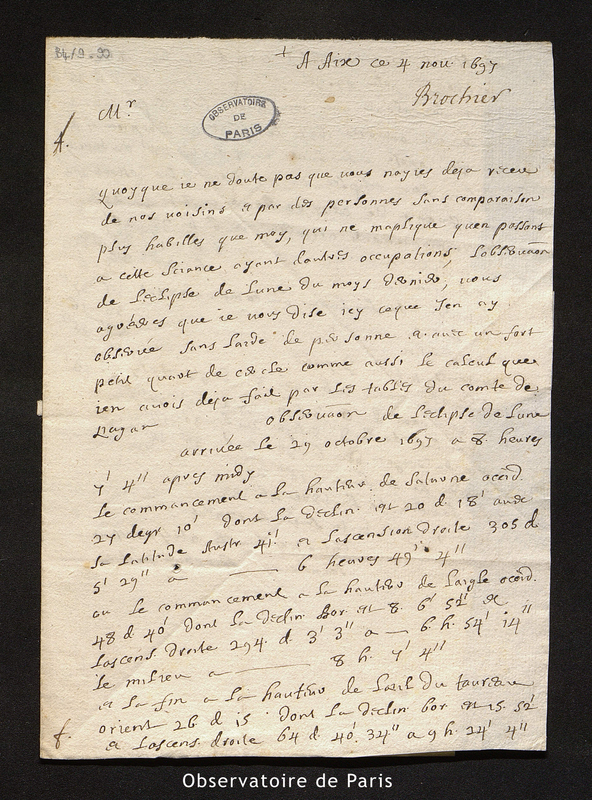 B4/9-90
+ A Aix ce 4 nov. 1697
Brochier
Mr
OBSERVATOIRE
DE
PARIS
quoyque ie ne doute pas que vous nayies deja receu
de nos voisins et par des personnes sans comparaison
plus habilles que moy, qui ne maplique quen passant
a cette sciance ayant dautres occupations, lobservaon
de leclipse de lune du moys dernier, vous
agreeres que ie vous dise icy ceque Jen ay
observé sans laide de personne et avec un fort
petit quart de cercle comme aussi le calcul que
ien avois deja fait par les tables du comte de
pagan observaon de leclipse de lune
arrivée le 29 octobre 1697 a 8 heures
7' 4" apres midy
Le commancement a la hauteur de saturne occid.
27 degr 10' dont la declin. et 20 d 18' avec
la latitude Austr 41' et lascension droite 305 d
5' 29" a 6 heures 49' 4"
ou le commancement a la hauteur de laigle occid.
48 d 40' dont la declin bor. et 8. 6' 52" et
lascens. droite 294. d. 3' 3" a — 6. h. 54' 14"
le milieu a 8 h. 7' 4"
et la fin a la hauteur de loeil du taureau
orient 26 d 15 dont la declin bor et 15. 52'
et lascens. droite 64 d 40' 34" a 9 h. 24' 4"
Observatoire de Paris